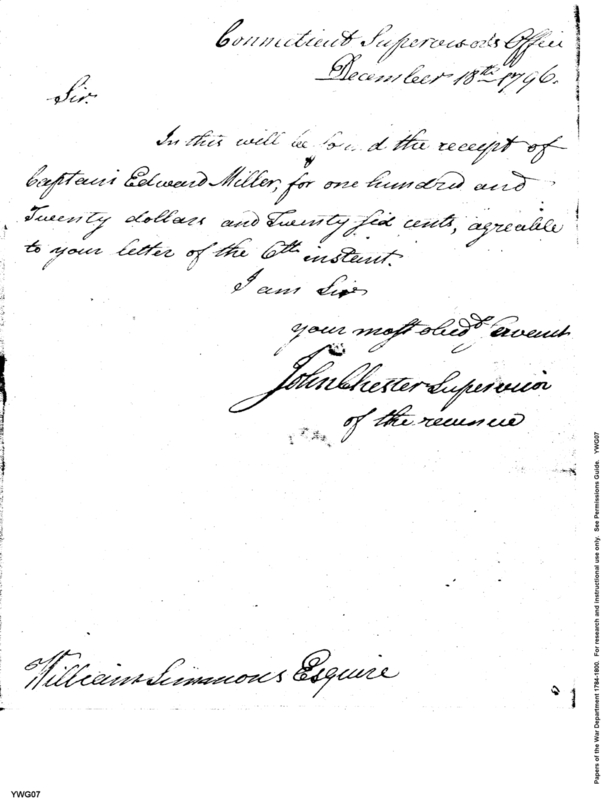 Connecticut Supervisors Office
December 18th 1796.
Sir.
In this will be found the receipt of
Captain Edward Miller, for one hundred and
Twenty dollars and Twenty six cents, agreable
to your letter of the 6th instant.
I am Sir
your most obedt. servant
John Chester Supervisor
of the revenue
William Simmons Esquire
YWG07
Papers of the War Department 1784-1800. For research and instructional use only. See Permissions Guide. YWG07